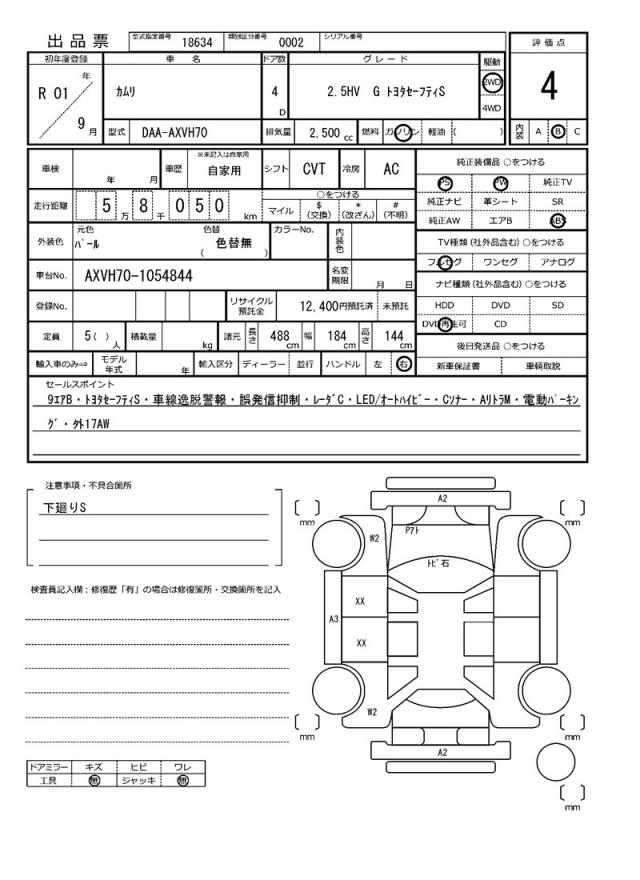 出品票 型式指定番号 18634 類別区分番号 0002 シリアル番号
評価点
4
初年度登録 車名 ドア数 グレード 駆動
R 01 年 9 月 カムリ 4 D 2.5HV G トヨタセーフティS 2WD 4WD
型式 DAA-AXVH70 排気量 2,500 cc 燃料 ガソリン 軽油 ( ) 内装 A B C
車検 年 月 車歴 ※未記入は自家用 自家用 シフト CVT 冷房 AC
走行距離 5 万 8 千 0 5 0 km ○をつける
マイル $(交換) *(改ざん) #(不明)
外装色 元色 パール 色替 色替無 ( ) カラーNo. 内装色
車台No. AXVH70-1054844 名変期限 月 日
登録No. リサイクル預託金 12,400円預託済 未預託
定員 5( ) 人 積載量 kg 諸元 長さ 488 cm 幅 184 cm 高さ 144 cm
輸入車のみ⇒ モデル年式 年 輸入区分 ディーラー 並行 ハンドル 左 右
純正装備品 ○をつける
PS PW 純正TV
純正ナビ 革シート SR
純正AW エアB ABS
TV種類 (社外品含む) ○をつける
フルセグ ワンセグ アナログ
ナビ種類 (社外品含む) ○をつける
HDD DVD SD
DVD再生可 CD
後日発送品 ○をつける
新車保証書 車輌取説
セールスポイント
9エアB・トヨタセーフティS・車線逸脱警報・誤発信抑制・レーダC・LED/オートハイビー・Cソナー・Aリトラm・電動パーキン
グ・外17AW
注意事項・不具合箇所
下廻りS
検査員記入欄：修復歴「有」の場合は修復箇所・交換箇所を記入
ドアミラー キズ ヒビ ワレ
工具 無 ジャッキ 無
A2
mm mm
W2 Pアト
トビ石
XX
A3
XX
W2
mm mm
A2
mm